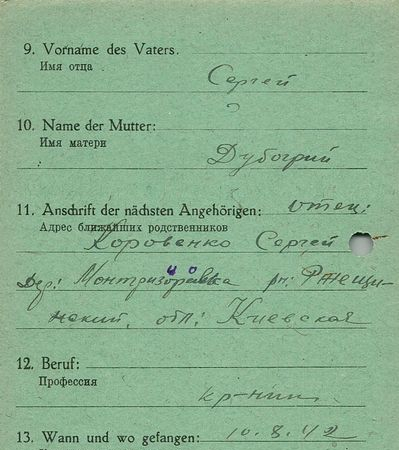 9. Vorname des Vaters.
Имя отца
Сергей
10. Name der Mutter:
Имя матери
Дубогрий
11. Anschrift der nächsten Angehörigen: отец:
Адрес ближайших родственников
Коровенко Сергей
Дер.: рн: Ржещи-
невский, обл: Киевская
12. Beruf:
Профессия
кр-нин
13. Wann und wo gefangen: 10.8.42